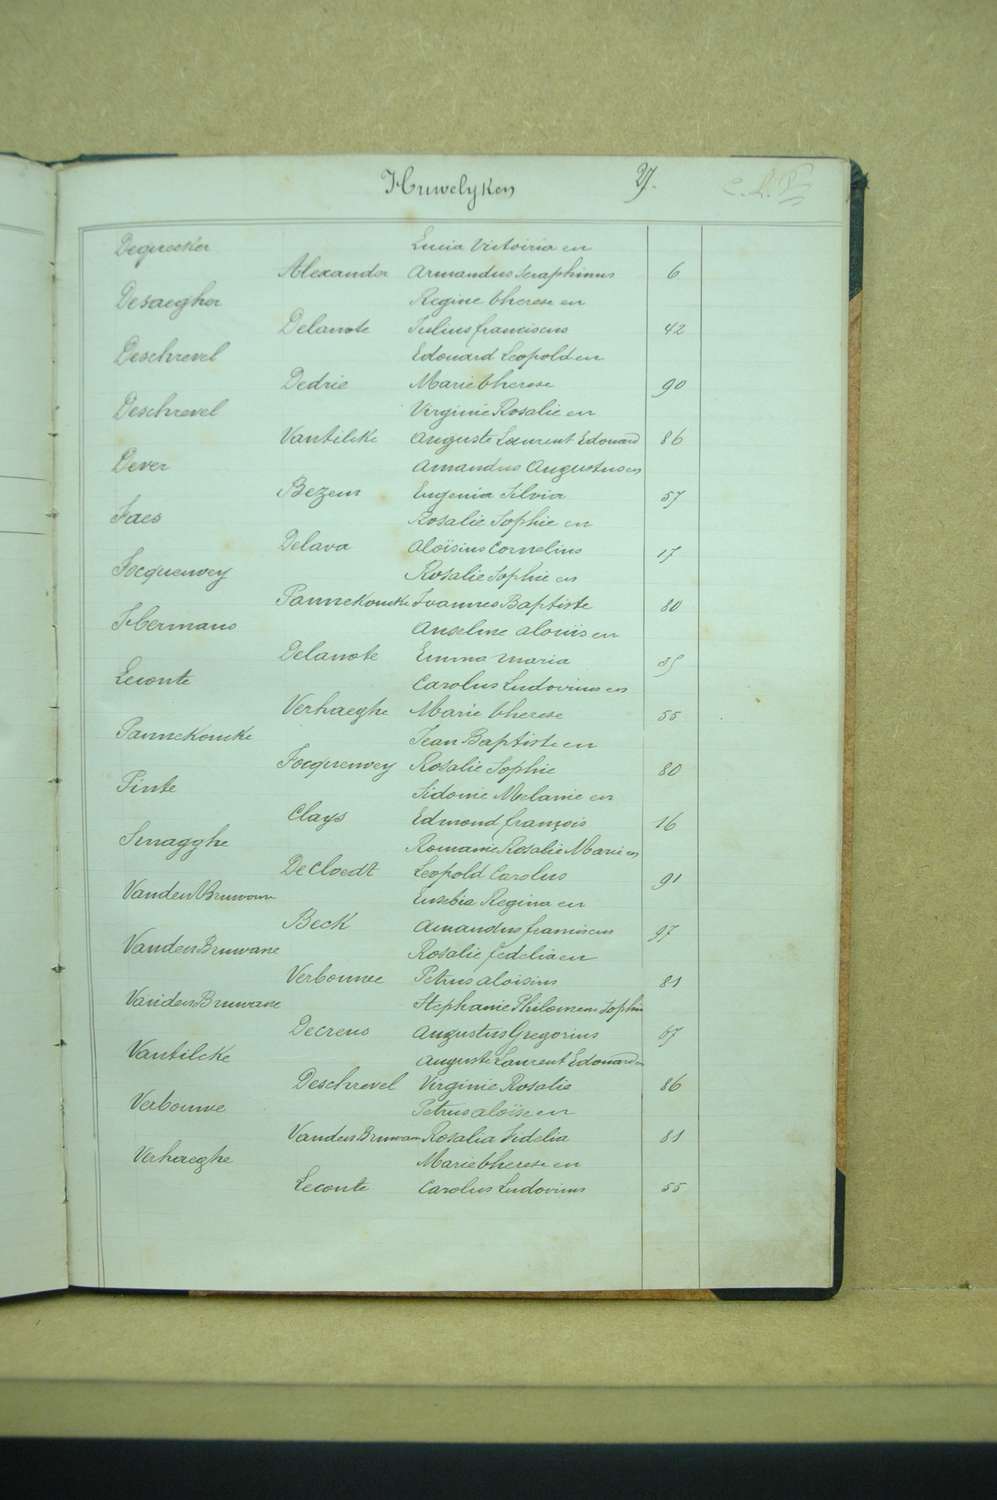 Huwelyken 27.
Dequecker Lucia Victoiria en
Alexander Armandus Seraphinus 6
Desaegher Regine therese en
Delanote Julius franciscus 42
Deschrevel Edouard Leopold en
Dedrie Marie therese 90
Deschrevel Virginie Rosalie en
Vantilcke Auguste Laurent Edouard 86
Dever Amandus Augustus en
Bezem Eugenia Silvia 57
Faes Rosalie Sophie en
Delava Aloïsius Cornelius 17
Focquenoey Rosalie Sophie en
Pannekoucke Joannes Baptiste 80
Hermans Anselme alouis en
Delanote Emma Maria
Leconte Carolus Ludovicus en
Verhaeghe Marie therese 55
Pannekoucke Jean Baptiste en
Focquenoey Rosalie Sophie 80
Pinte Sidonie Melanie en
Clays Edmond françois 16
Smagghe Romanie Rosalie Marie en
DeCloedt Leopold Carolus 91
Eusebia Regina en
Beck Amandus franciscus 97
VandenBruwane Rosalie fedelia en
Verbouwe Petrus aloisius 81
VandenBruwane Stephanie Philomene Sophie
Decreus Augustus Gregorius 67
Vantilcke Auguste Laurent Edouard en
Deschrevel Virginie Rosalie 86
Verbouwe Petrus aloïse en
VandenBruwane Rosalia Fidelia 81
Verhaeghe Marie therese en
Leconte Carolus Ludovicus 55